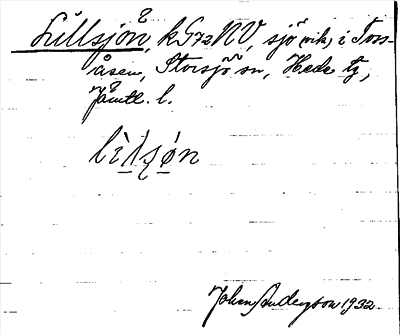 Lillsjön, kG72NV, sjö (vik) i Foss-
åsen, Storsjö sn, Hede tg,
Jämtl. l.
lìlsǫ́n
Johan Anderson 1932.